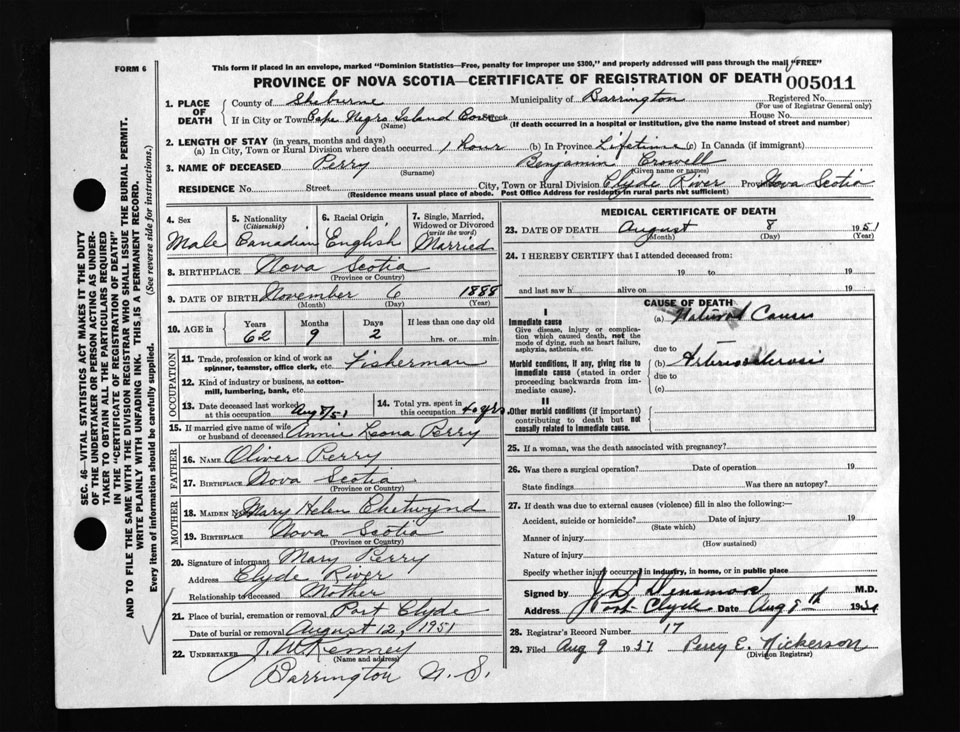 FORM 6
This form if placed in an envelope, marked "Dominion Statistics—Free, penalty for improper use $300," and properly addressed will pass through the mail "FREE"
PROVINCE OF NOVA SCOTIA—CERTIFICATE OF REGISTRATION OF DEATH 005011
1. PLACE OF DEATH
County of Shelburne Municipality of Barrington Registered No.
(For use of Registrar General only)
If in City or Town Cape Negro Island Cove House No.
(Name) (If death occurred in a hospital or institution, give the name instead of street and number)
2. LENGTH OF STAY (in years, months and days)
(a) In City, Town or Rural Division where death occurred 1 hour (b) In Province Lifetime (c) In Canada (if immigrant)
3. NAME OF DECEASED Perry Benjamin Crowell
(Surname) (Given name or names)
RESIDENCE No. Street City, Town or Rural Division Clyde River Province Nova Scotia
(Residence means usual place of abode. Post Office Address for residents in rural parts not sufficient)
4. Sex
Male
5. Nationality
(Citizenship)
Canadian
6. Racial Origin
English
7. Single, Married, Widowed or Divorced
(write the word)
Married
8. BIRTHPLACE Nova Scotia
(Province or Country)
9. DATE OF BIRTH November 6 1888
(Month) (Day) (Year)
10. AGE in
Years Months Days If less than one day old
62 9 2 hrs. or min.
OCCUPATION
11. Trade, profession or kind of work as spinner, teamster, office clerk, etc. Fisherman
12. Kind of industry or business, as cotton-mill, lumbering, bank, etc.
13. Date deceased last worked at this occupation Aug 8/51
14. Total yrs. spent in this occupation 40 yrs.
15. If married give name of wife or husband of deceased Annie Leona Perry
FATHER
16. NAME Oliver Perry
17. BIRTHPLACE Nova Scotia
(Province or Country)
MOTHER
18. MAIDEN Mary Helen Chetwynd
19. BIRTHPLACE Nova Scotia
(Province or Country)
20. Signature of informant Mary Perry
Address Clyde River
Relationship to deceased Mother
21. Place of burial, cremation or removal Port Clyde
Date of burial or removal August 12, 1951
22. UNDERTAKER J. McKenney
(Name and address)
Barrington N. S.
MEDICAL CERTIFICATE OF DEATH
23. DATE OF DEATH August 8 1951
(Month) (Day) (Year)
24. I HEREBY CERTIFY that I attended deceased from:
19 to 19
and last saw h alive on 19
CAUSE OF DEATH
I
Immediate cause
Give disease, injury or complication which caused death, not the mode of dying, such as heart failure, asphyxia, asthenia, etc.
(a) Natural Causes
due to
Morbid conditions, if any, giving rise to immediate cause (stated in order proceeding backwards from immediate cause).
(b) Arteriosclerosis
due to
(c)
II
Other morbid conditions (if important) contributing to death but not causally related to immediate cause.
25. If a woman, was the death associated with pregnancy?
26. Was there a surgical operation? Date of operation 19
State findings Was there an autopsy?
27. If death was due to external causes (violence) fill in also the following:—
Accident, suicide or homicide? Date of injury 19
(State which)
Manner of injury
(How sustained)
Nature of injury
Specify whether injury occurred in industry, in home, or in public place
Signed by M.D.
Address Port Clyde Date Aug 9th
28. Registrar's Record Number 17
29. Filed Aug 9 Percy E. Nickerson
(Division Registrar)
SEC. 46—VITAL STATISTICS ACT MAKES IT THE DUTY
OF THE UNDERTAKER OR PERSON ACTING AS UNDER-
TAKER TO OBTAIN ALL THE PARTICULARS REQUIRED
IN THE "CERTIFICATE OF REGISTRATION OF DEATH"
AND TO FILE THE SAME WITH THE DIVISION REGISTRAR WHO SHALL ISSUE THE BURIAL PERMIT.
WRITE PLAINLY WITH UNFADING INK. THIS IS A PERMANENT RECORD.
Every item of information should be carefully supplied. (See reverse side for instructions.)